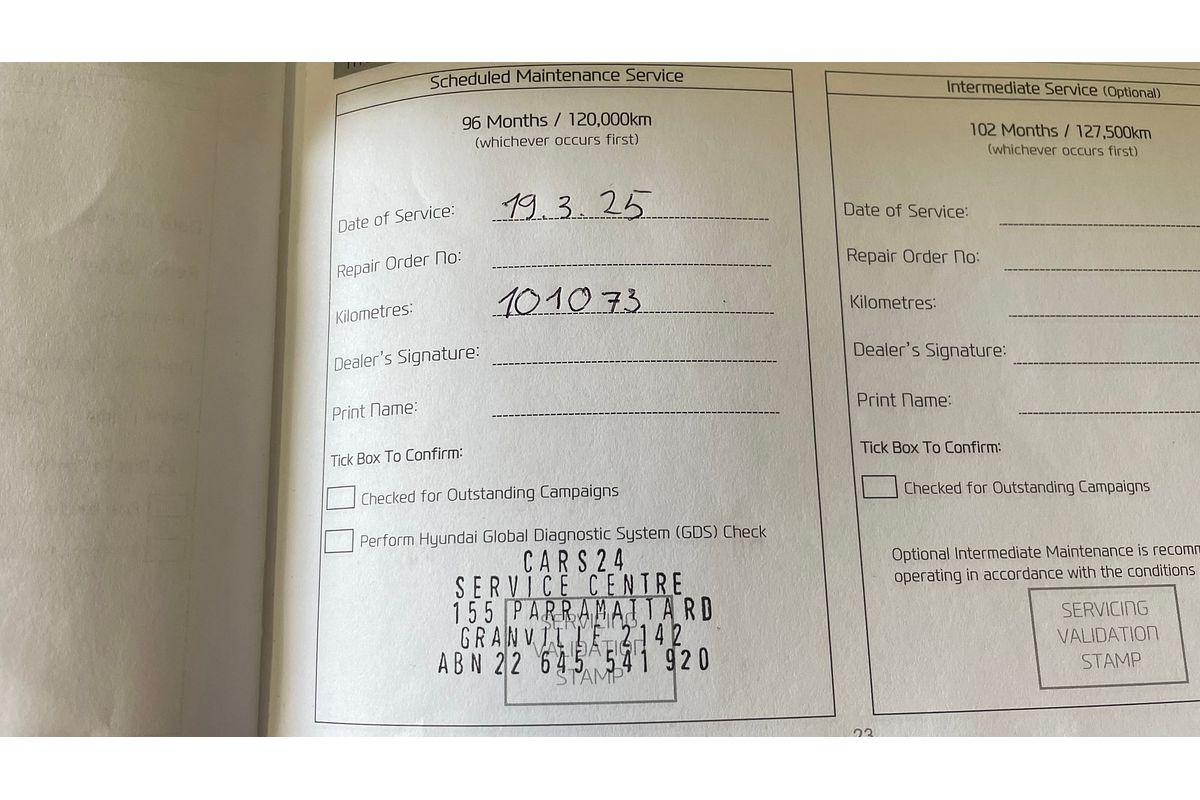 Scheduled Maintenance Service
96 Months / 120,000km
(whichever occurs first)
Date of Service: 19.3.25
Repair Order No:
Kilometres: 101073
Dealer's Signature:
Print Name:
Tick Box To Confirm:
Checked for Outstanding Campaigns
Perform Hyundai Global Diagnostic System (GDS) Check
CARS24
SERVICE CENTRE
155 PARRAMATTA RD
GRANVILLE 2142
ABN 22 645 541 920
SERVICING
VALIDATION
STAMP
Intermediate Service (Optional)
102 Months / 127,500km
(whichever occurs first)
Date of Service:
Repair Order No:
Kilometres:
Dealer's Signature:
Print Name:
Tick Box To Confirm:
Checked for Outstanding Campaigns
Optional Intermediate Maintenance is
operating in accordance with the conditions
SERVICING
VALIDATION
STAMP
23